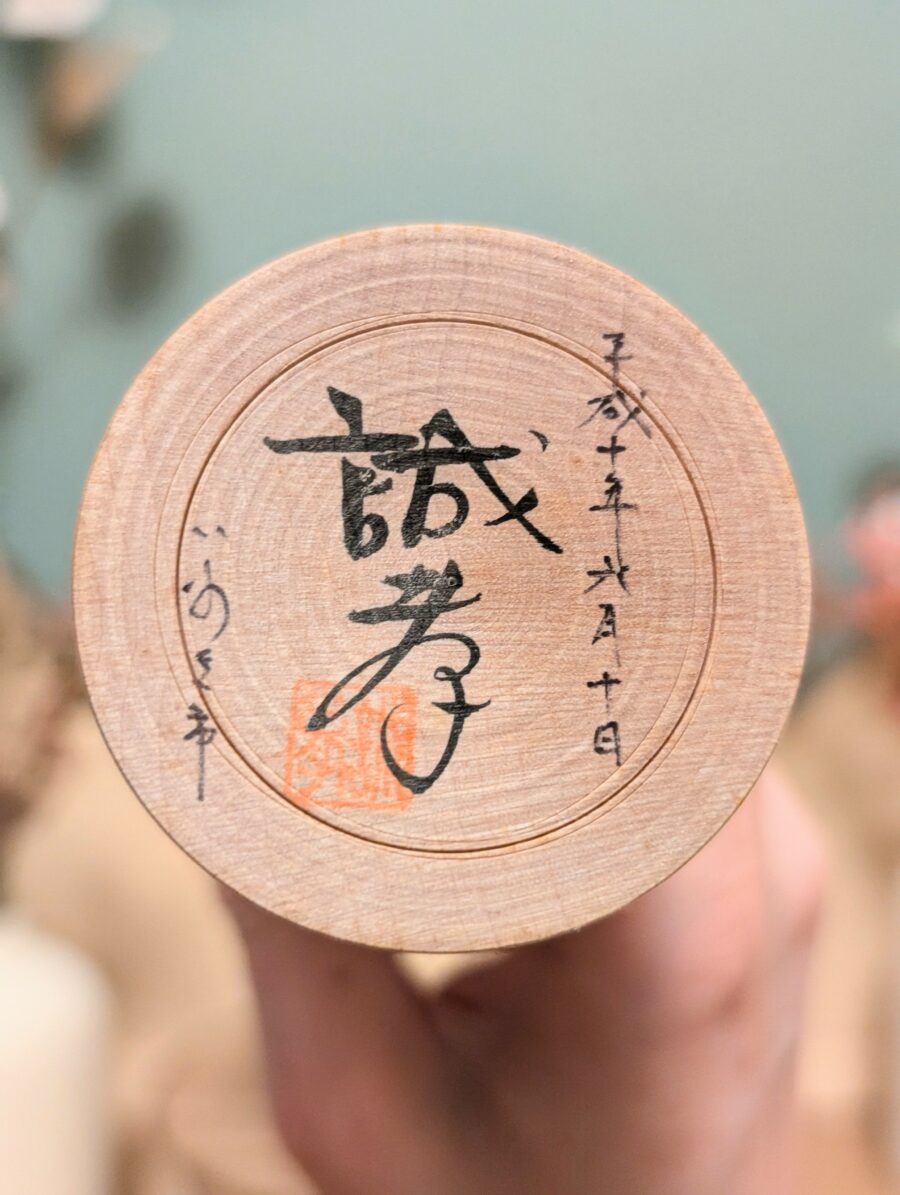 平成十年六月十日
誠孝
いわき市